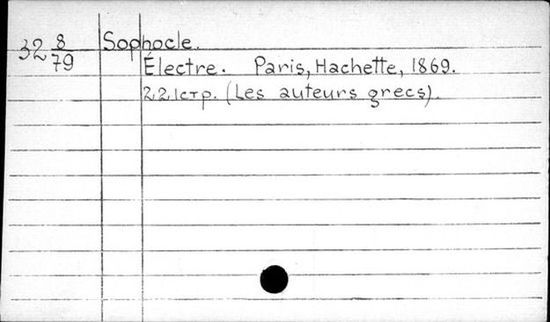 32 8/79 Sophocle.
Électre. Paris, Hachette, 1869.
221стр. (Les auteurs grecs).